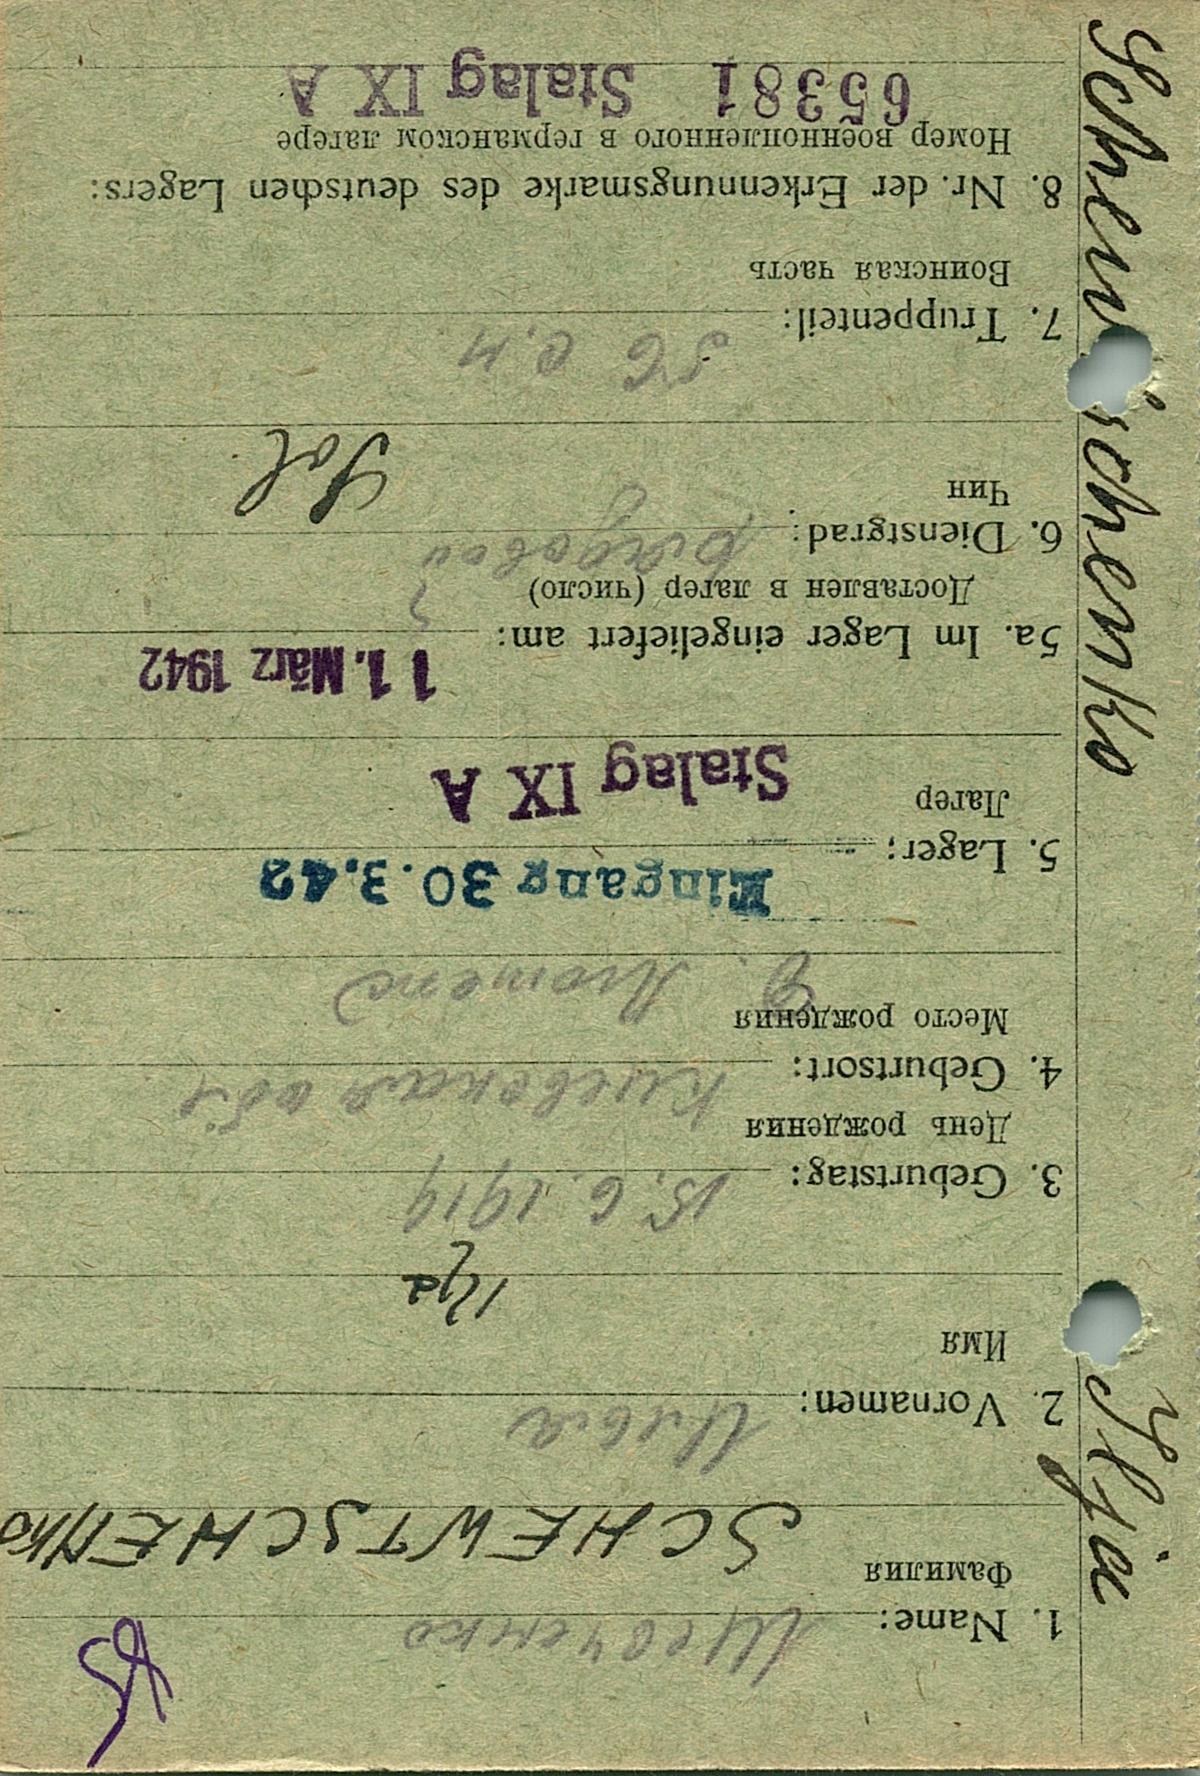 1. Name:
Фамилия
SCHEWTSCHENKO
2. Vornamen: Илья
Имя
Ilja
3. Geburtstag: 15.6.1919
День рождения
4. Geburtsort: Киевская обл
Место рождения
5. Lager: Eingang 30.3.42
Лагер
Stalag IX A
5a. Im Lager eingeliefert am: 11. März 1942
Доставлен в лагер (число)
6. Dienstgrad: рядовой
Чин
Sol
7. Truppenteil: 56 с.п
Воинская часть
8. Nr. der Erkennungsmarke des deutschen Lagers:
Номер военнопленного в германском лагере
65381 Stalag IX A
Schew schenko Ilja